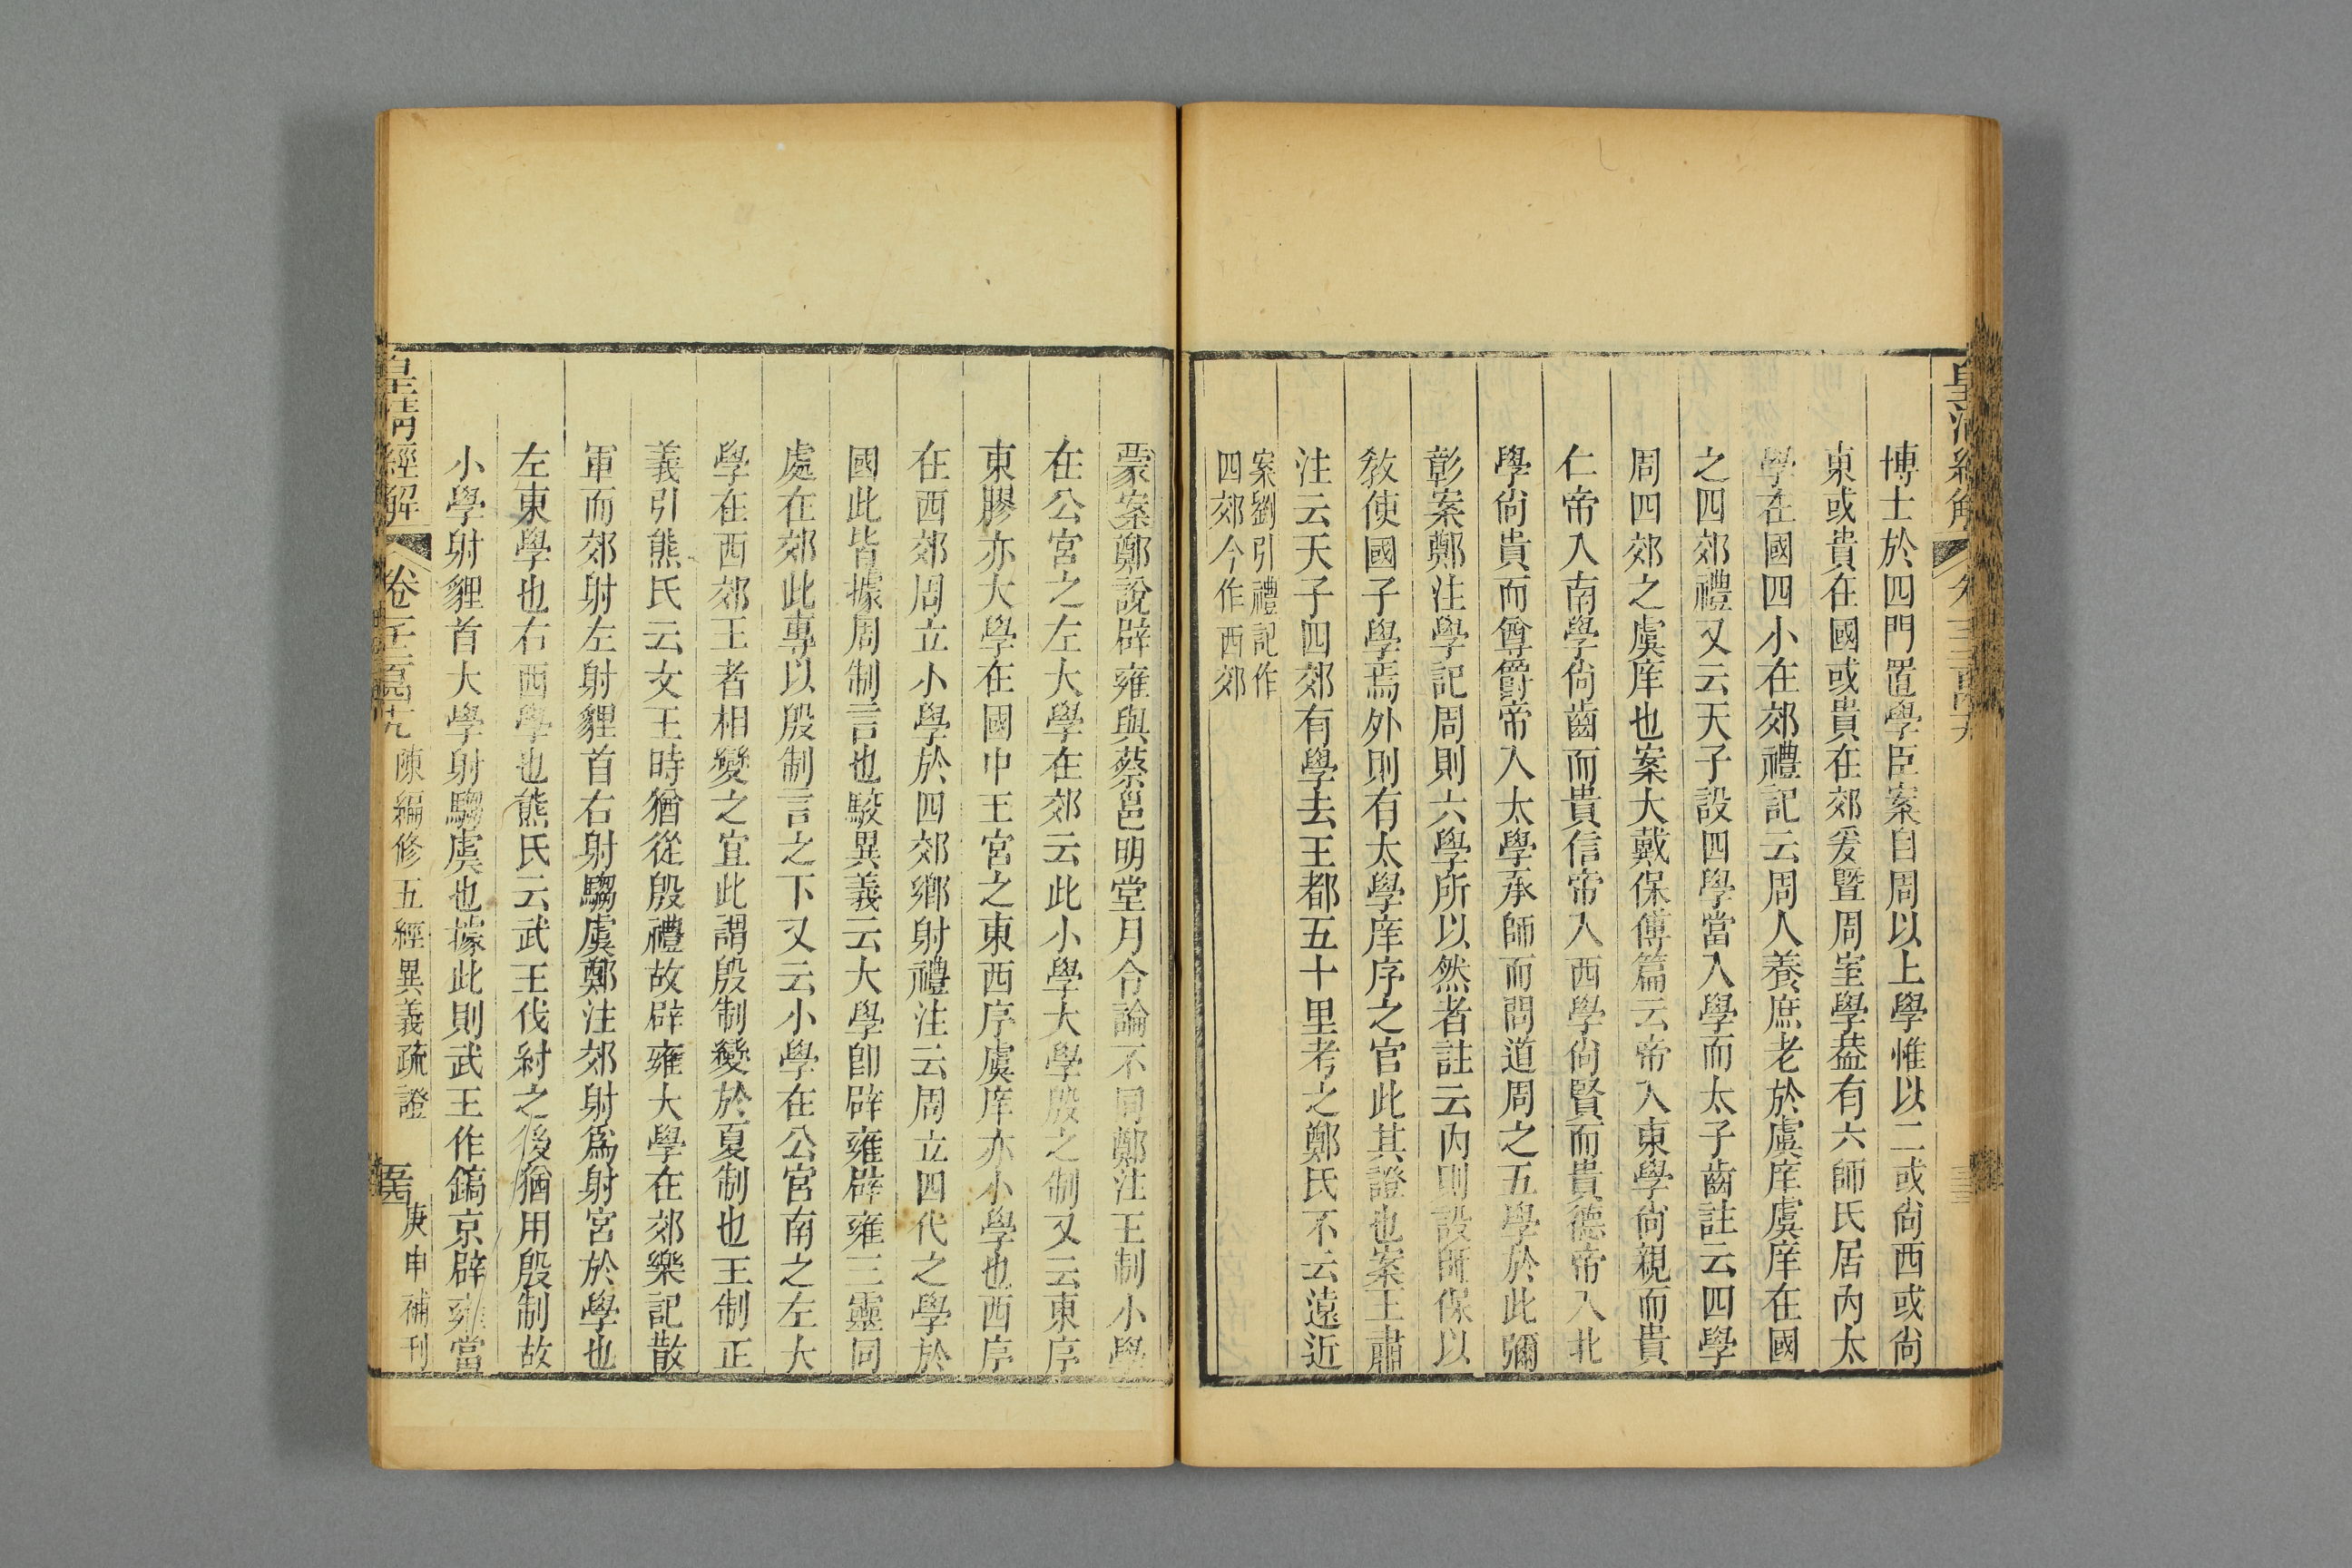 博士於四門置學臣案自周以上學惟以二或尙西或尙
東或貴在國或貴在郊爰曁周室學葢有六師氏居內太
學在國四小在郊禮記云周人養庶老於虞庠虞庠在國
之四郊禮又云天子設四學當入學而太子齒註云四學
周四郊之虞庠也案大戴保傅篇云帝入東學尙親而貴
仁帝入南學尙齒而貴信帝入西學尙賢而貴德帝入北
學尙貴而尊爵帝入太學承師而問道周之五學於此彌
彰案鄭注學記周則六學所以然者註云內則設師保以
敎使國子學焉外則有太學庠序之官此其證也案王肅
注云天子四郊有學去王都五十里考之鄭氏不云遠近
案劉引禮記作
四郊今作西郊
蒙案鄭說辟雍與蔡邕明堂月令論不同鄭注王制小學
在公宮之左大學在郊云此小學大學殷之制又云東序
東膠亦大學在國中王宮之東西序虞庠亦小學也西序
在西郊周立小學於四郊鄉射禮注云周立四代之學於
國此皆據周制言也駮異義云大學卽辟雍辟雍三靈同
處在郊此專以殷制言之下又云小學在公宮南之左大
學在西郊王者相變之宜此謂殷制變於夏制也王制正
義引熊氏云文王時猶從殷禮故辟雍大學在郊樂記散
軍而郊射左射貍首右射騶虞鄭注郊射爲射宮於學也
左東學也右西學也熊氏云武王伐紂之後猶用殷制故
小學射貍首大學射騶虞也據此則武王作鎬京辟雍當
皇淸經解 卷 陳編修五經異義疏證 庚申補刊